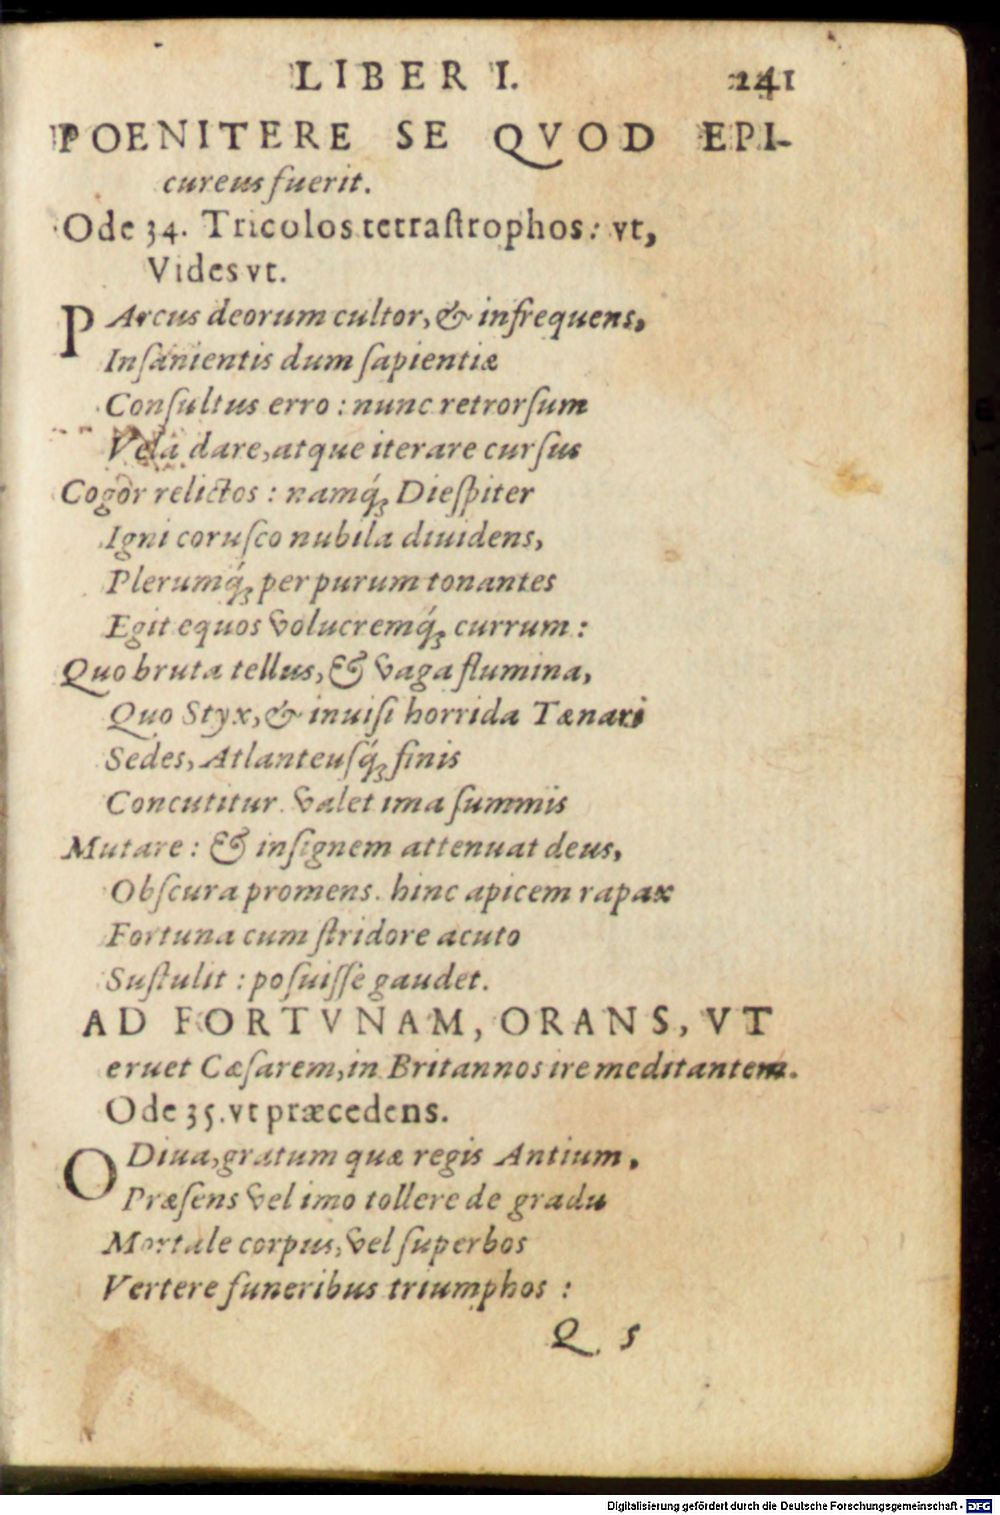 LIBER I. 241
POENITERE SE QVOD EPI-
cureus fuerit.
Ode 34. Tricolos tetraſtrophos: vt,
Vides vt.
PArcus deorum cultor, & infrequens,
Inſanientis dum ſapientiæ
Conſultus erro : nunc retrorſum
Vela dare, atque iterare curſus
Cogor relictos : namq́; Dieſpiter
Igni coruſco nubila diuidens,
Plerumq́; per purum tonantes
Egit equos volucremq́; currum :
Quo bruta tellus, & vaga flumina,
Quo Styx, & inuiſi horrida Tænari
Sedes, Atlanteuſq́; finis
Concutitur. valet ima ſummis
Mutare : & inſignem attenuat deus,
Obſcura promens. hinc apicem rapax
Fortuna cum ſtridore acuto
Suſtulit : poſuiſſe gaudet.
AD FORTVNAM, ORANS, VT
eruet Cæſarem, in Britannos ire meditantem.
Ode 35. vt præcedens.
O Diua, gratum quæ regis Antium,
Præſens vel imo tollere de gradu
Mortale corpus, vel ſuperbos
Vertere funeribus triumphos :
Q 5
Digitalisierung gefördert durch die Deutsche Forschungsgemeinschaft - DFG